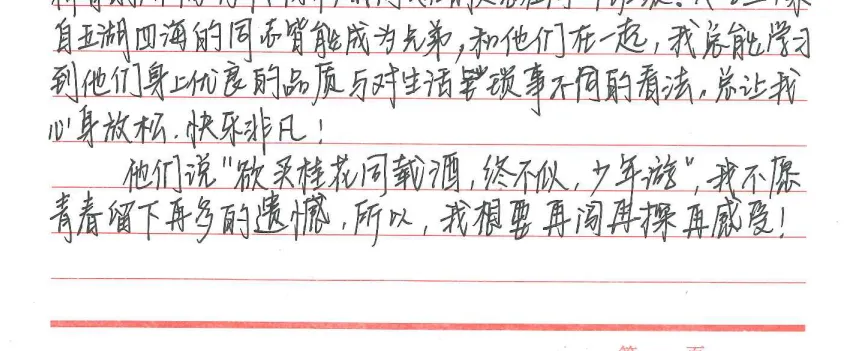 自五湖四海的同志皆能成为兄弟,和他们在一起,我总能学习
到他们身上优良的品质与对生活琐事不同的看法,总让我
心身放松,快乐非凡!
他们说"欲买桂花同载酒,终不似,少年游",我不愿
青春留下再多的遗憾,所以,我想要再闯再探再感受!